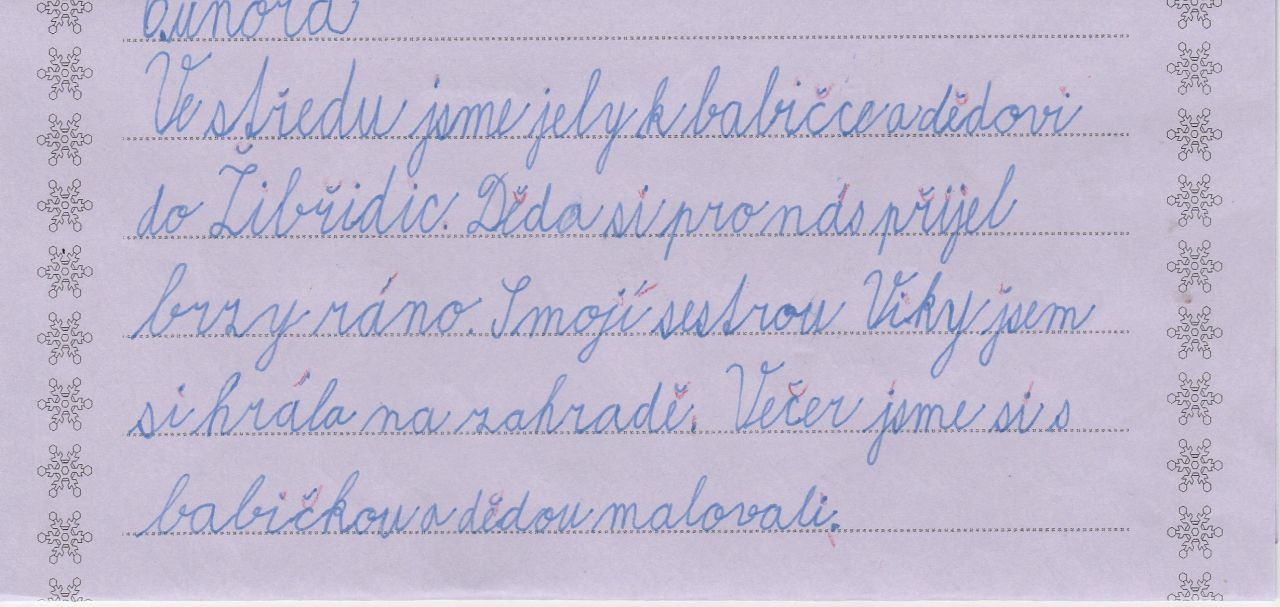 6. února
Ve středu jsme jely k babičce a dědovi
do Žibřidic. Děda si pro nás přijel
brzy ráno. S mojí sestrou Viky jsem
si hrála na zahradě. Večer jsme si s
babičkou a dědou malovali.